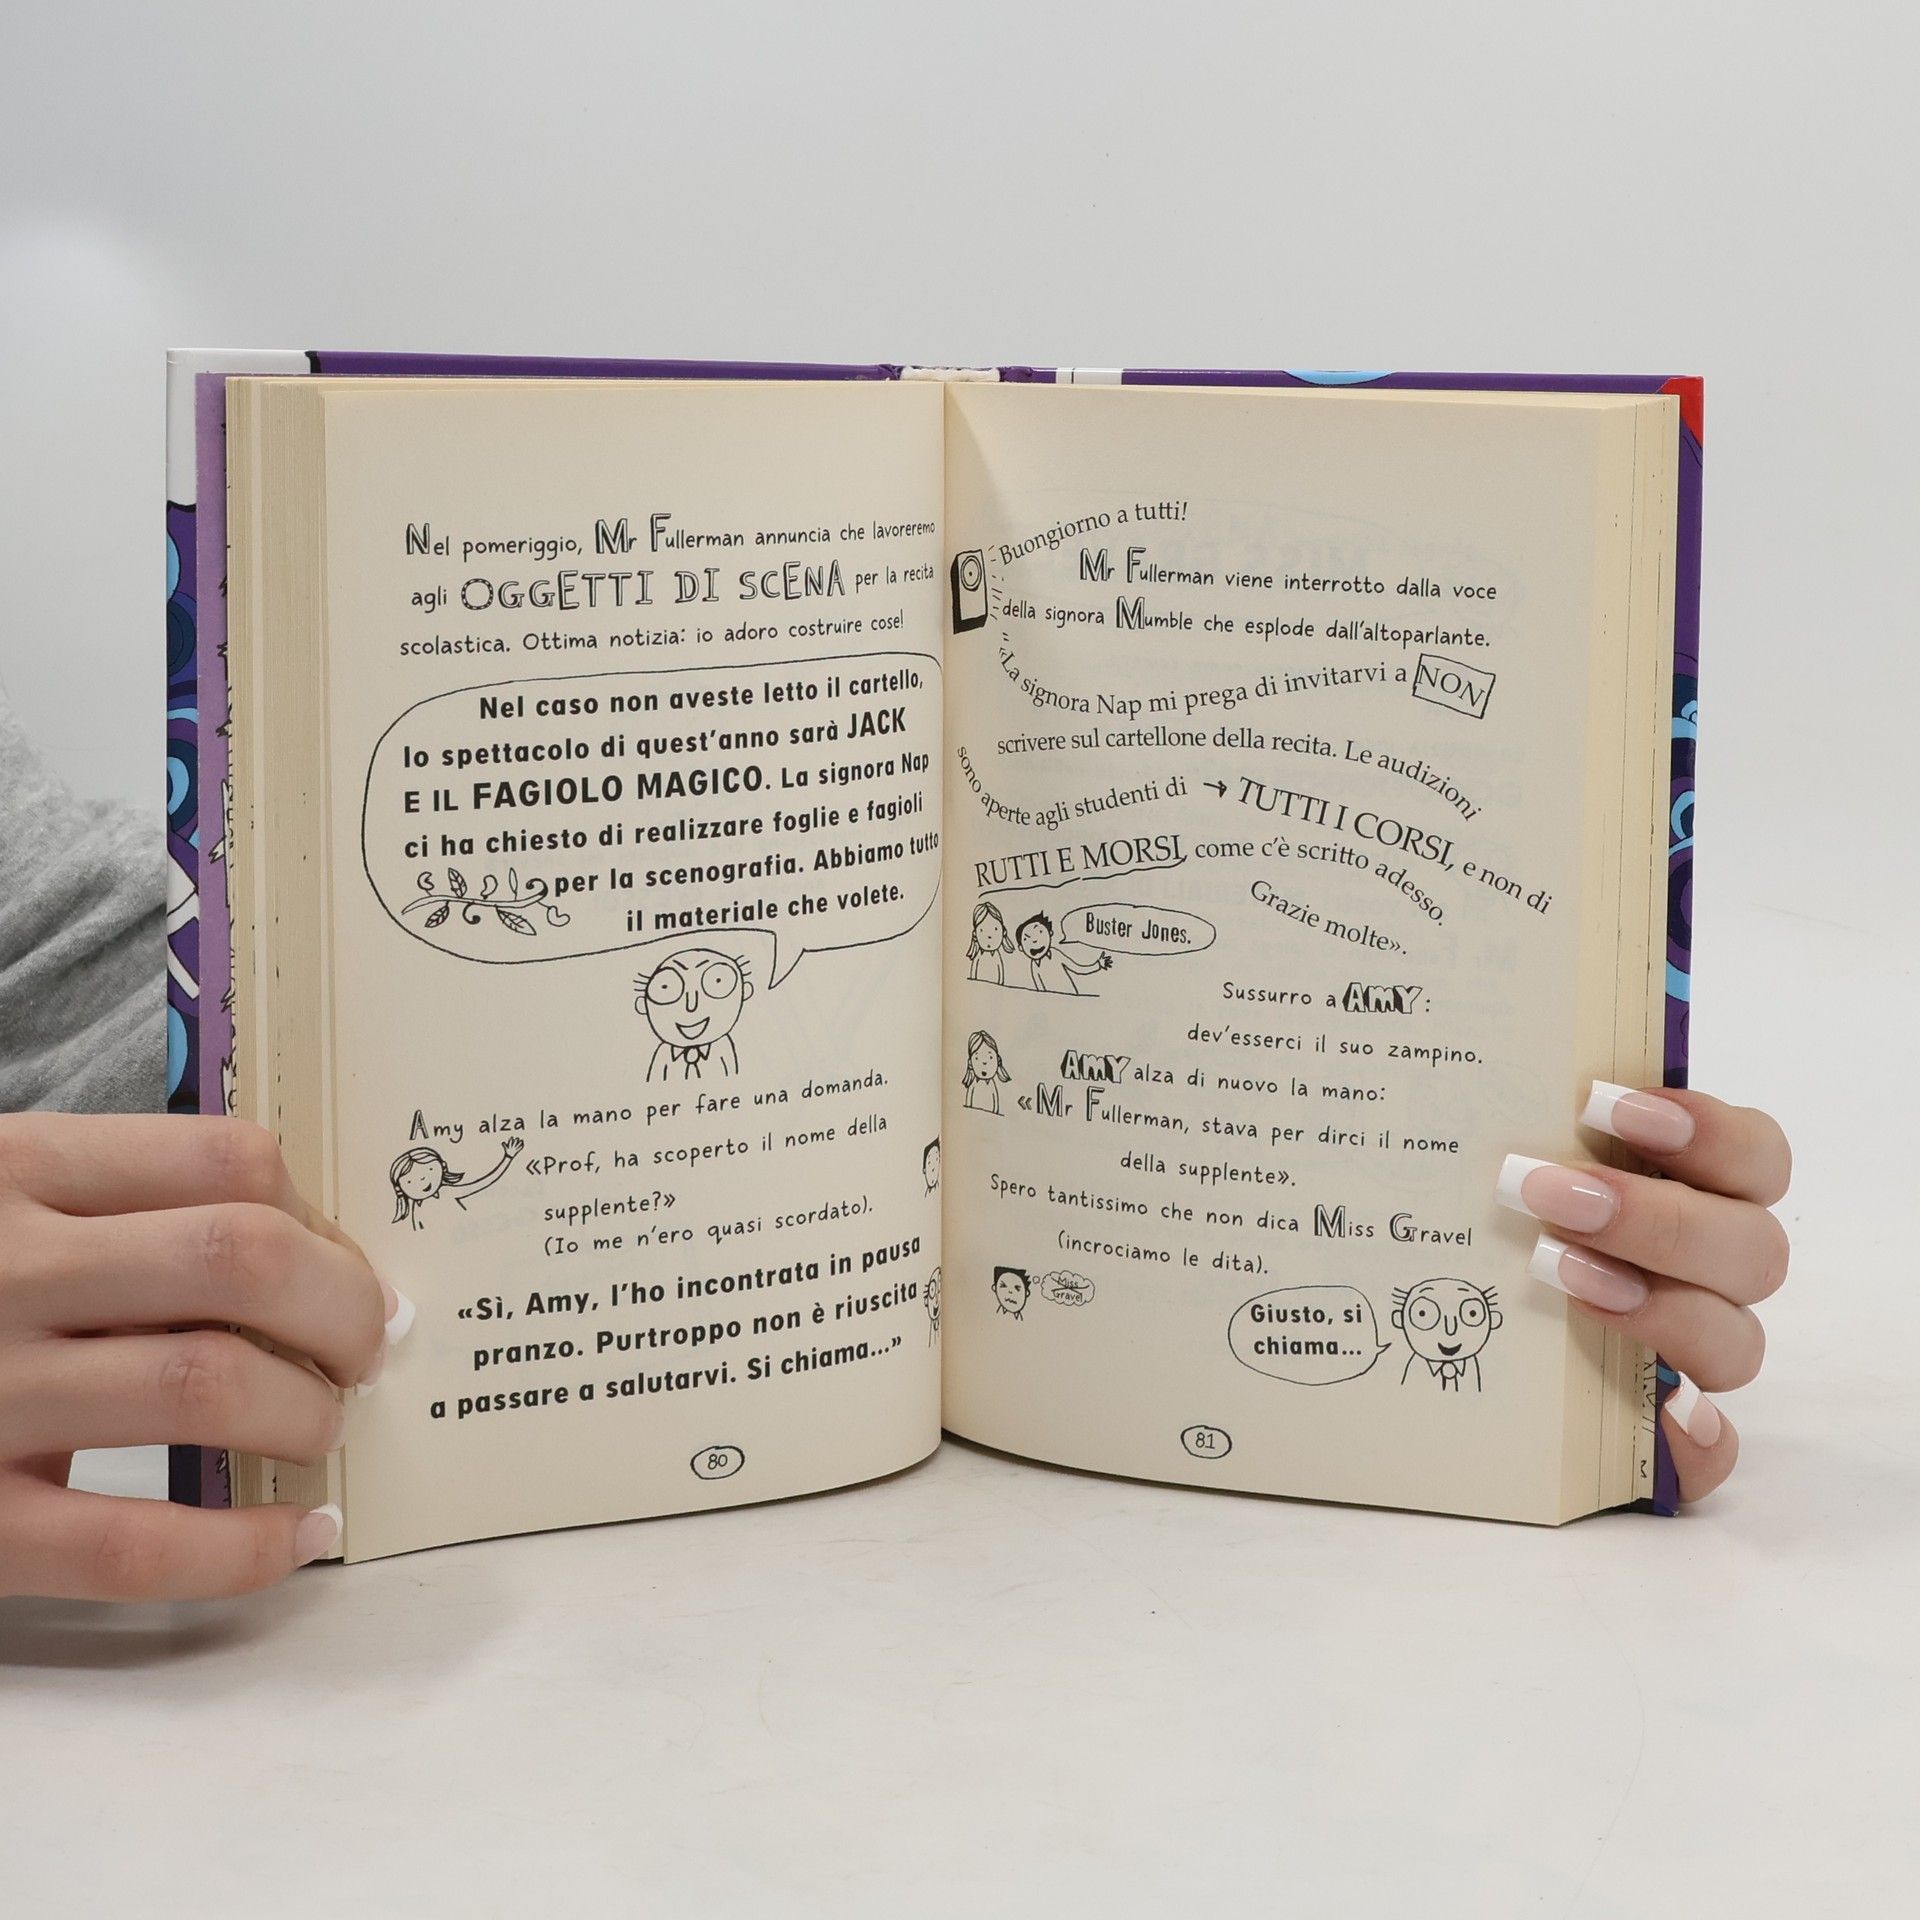 Nel pomeriggio, Mr Fullerman annuncia che lavoreremo
agli OGGETTI DI SCENA per la recita
scolastica. Ottima notizia: io adoro costruire cose!
Nel caso non aveste letto il cartello,
lo spettacolo di quest'anno sarà JACK
E IL FAGIOLO MAGICO. La signora Nap
ci ha chiesto di realizzare foglie e fagioli
per la scenografia. Abbiamo tutto
il materiale che volete.
Amy alza la mano per fare una domanda.
«Prof, ha scoperto il nome della
supplente?»
(Io me n'ero quasi scordato).
«Sì, Amy, l'ho incontrata in pausa
pranzo. Purtroppo non è riuscita
a passare a salutarvi. Si chiama...»
80
Buongiorno a tutti!
Mr Fullerman viene interrotto dalla voce
della signora Mumble che esplode dall'altoparlante.
«La signora Nap mi prega di invitarvi a NON
scrivere sul cartellone della recita. Le audizioni
sono aperte agli studenti di → TUTTI I CORSI, e non di
RUTTI E MORSI, come c'è scritto adesso.
Grazie molte».
Buster Jones.
Sussurro a AMY:
dev'esserci il suo zampino.
AMY alza di nuovo la mano:
«Mr Fullerman, stava per dirci il nome
della supplente».
Spero tantissimo che non dica Miss Gravel
(incrociamo le dita).
Miss
Gravel
Giusto, si
chiama...
81